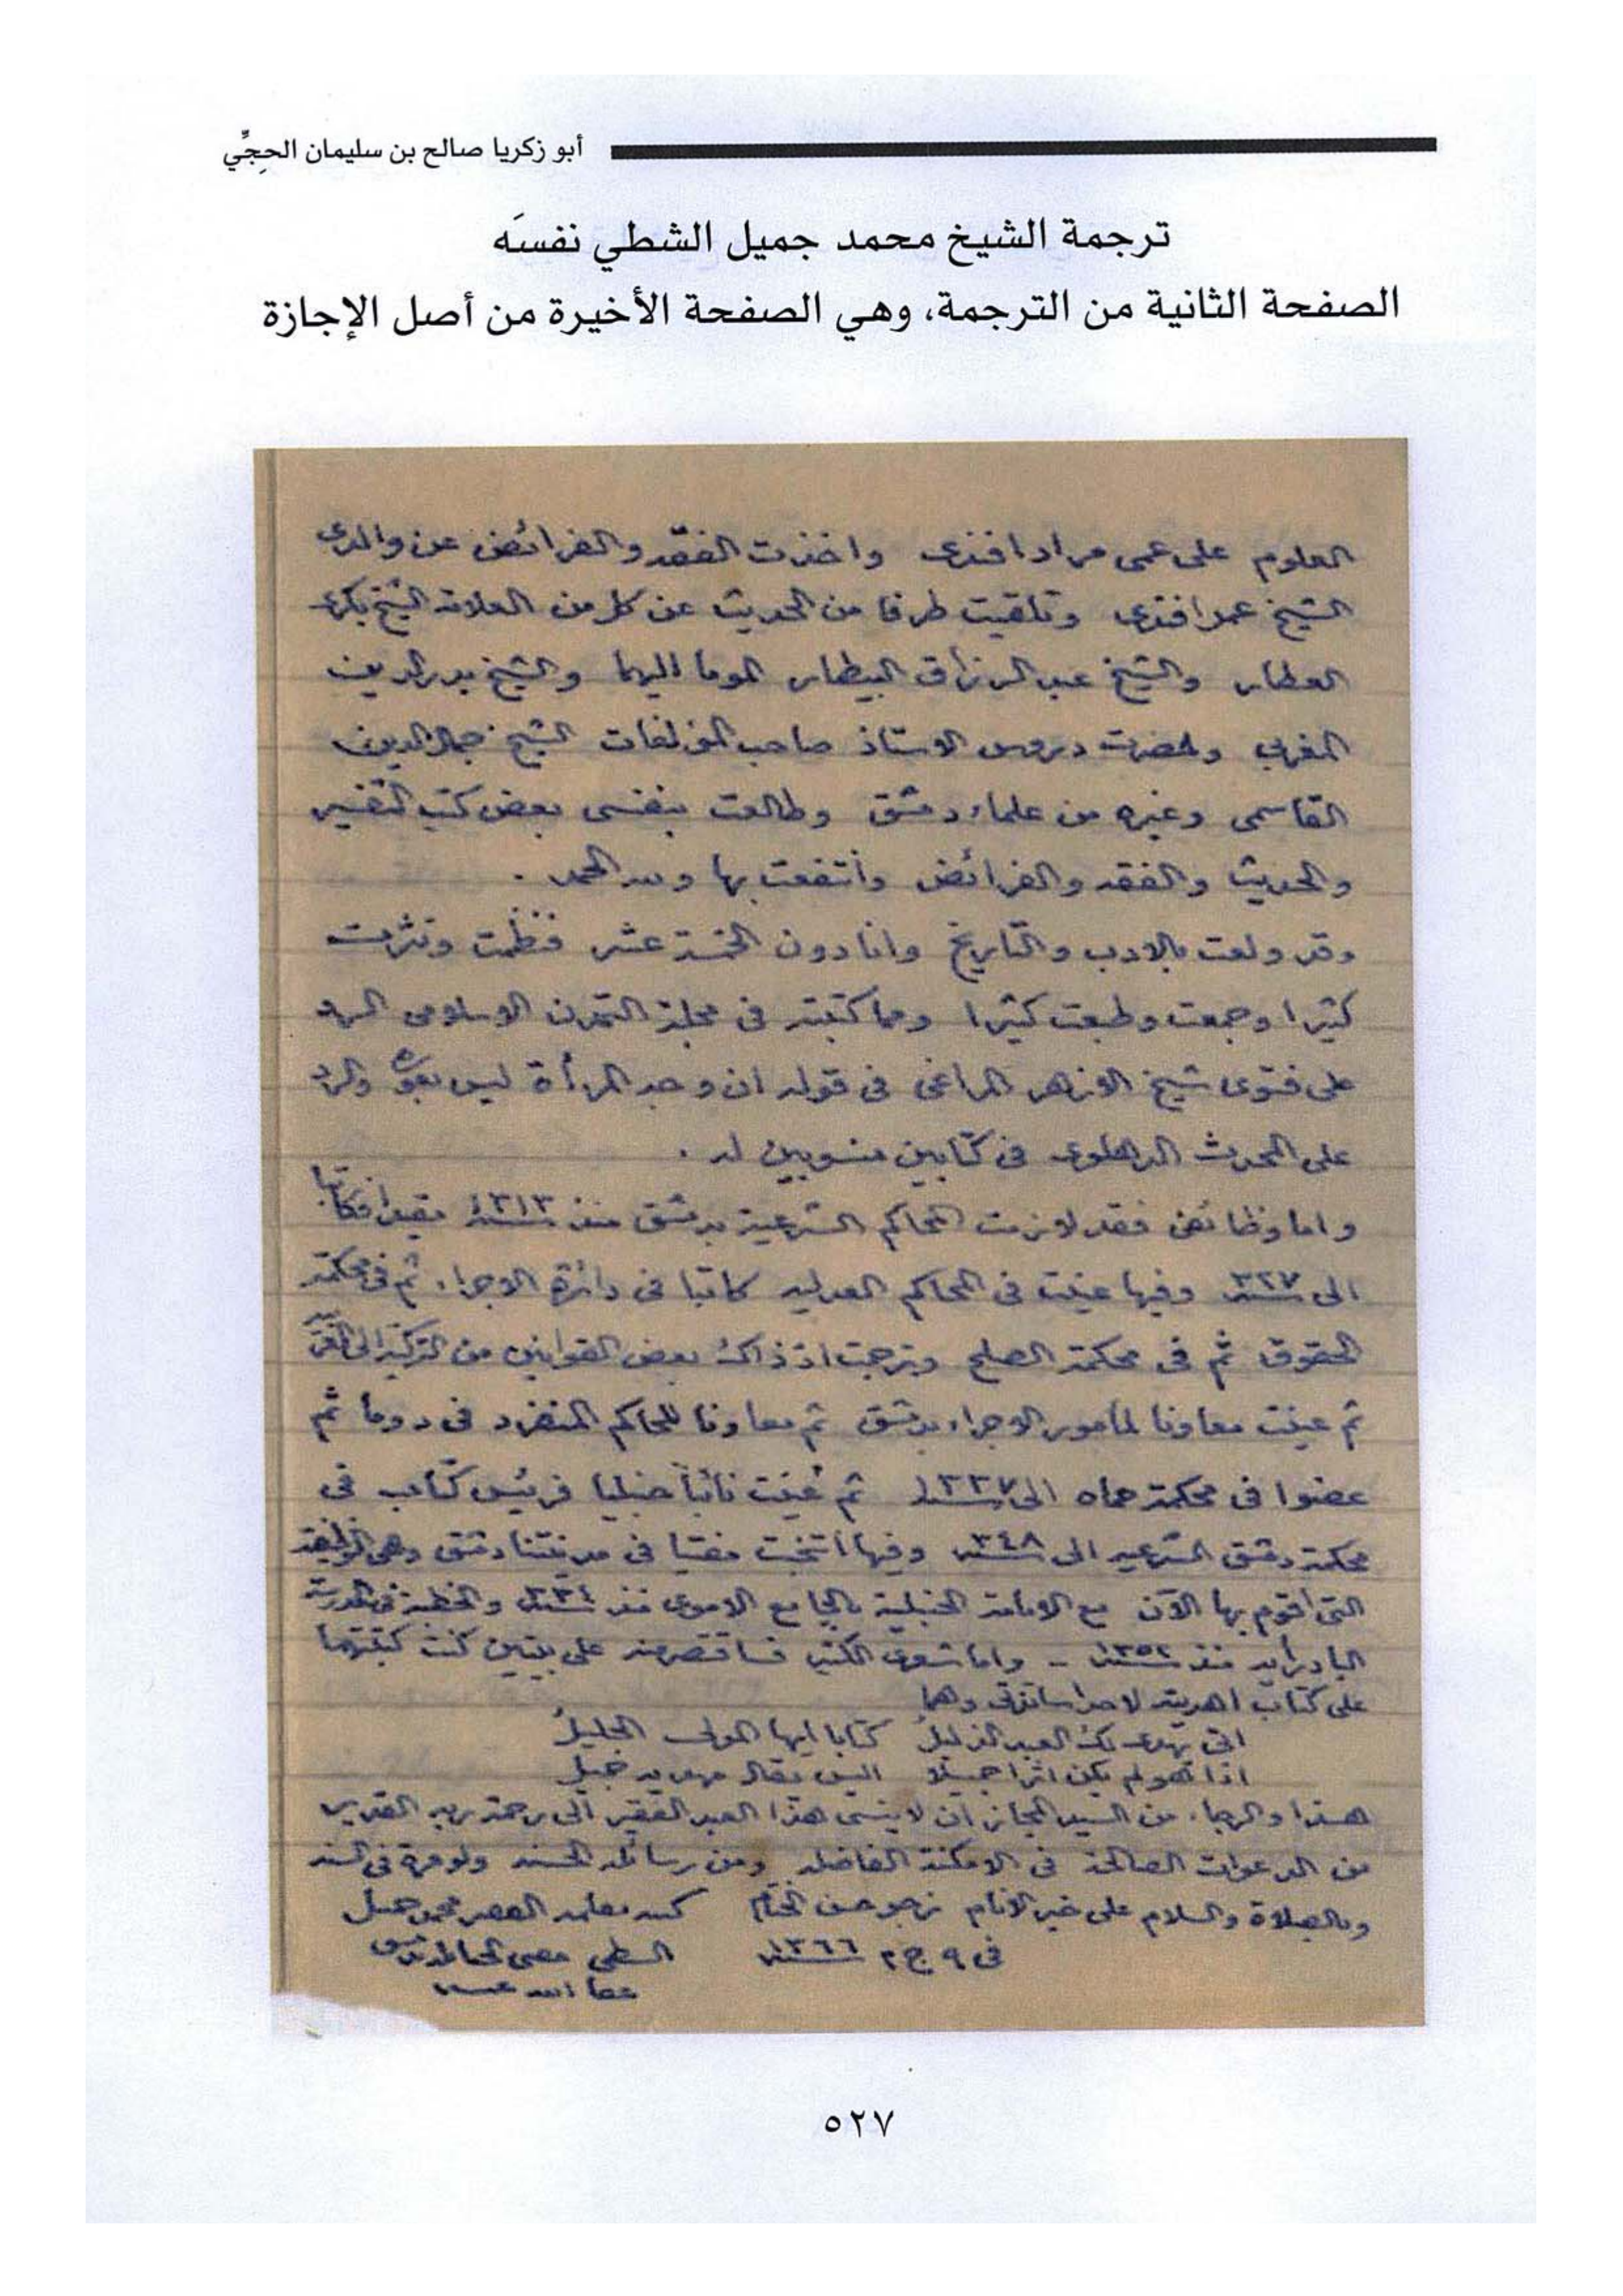 أبو زكريا صالح بن سليمان الحِجِّي
ترجمة الشيخ محمد جميل الشطي نفسَه
الصفحة الثانية من الترجمة، وهي الصفحة الأخيرة من أصل الإجازة
العلوم على عمى مراد افندى واخذت الفقه والفرائض عن والدى
الشيخ عمر افندى وتلقيت طرفا من الحديث عن كل من العلامة الشيخ بكرى
العطار والشيخ عبد الرزاق البيطار الموما اليهما والشيخ بدر الدين
المغربى وحضرت دروس الاستاذ صاحب المؤلفات الشيخ جمال الدين
القاسمى وغيره من علماء دمشق وطالعت بنفسى بعض كتب التفسير
والحديث والفقه والفرائض وانتفعت بها ولله الحمد .
وقد ولعت بالادب والتاريخ وانا دون الخمسة عشر فنظمت ونثرت
كثيرا وجمعت وطبعت كثيرا ومما كتبته فى مجلة التمدن الاسلامى الرد
على فتوى شيخ الازهر المراغى فى قوله ان وجه المرأة ليس بعورة والرد
على المحدث الدهلوى فى كتابين منسوبين له .
واما وظائفى فقد لازمت المحاكم الشرعية بدمشق منذ سنة ١٣١٣ مقيدا فكاتبا
الى سنة ٣٢٧ وفيها عينت فى المحاكم العدلية كاتبا فى دائرة الاجراء ثم فى محكمة
الحقوق ثم فى محكمة الصلح وترجمت اذ ذاك بعض القوانين من التركية الى العربية
ثم عينت معاونا لمأمور الاجراء بدمشق ثم معاونا للحاكم المنفرد فى دوما ثم
عضوا فى محكمة حماه الى سنة ١٣٣٧ ثم عُينت نائباً حنبليا فرئيس كتاب فى
محكمة دمشق الشرعية الى سنة ٣٤٨ وفيها انتخبت مفتيا فى مدينتنا دمشق وهى الوظيفة
التى اقوم بها الآن مع الامامة الحنبلية بالجامع الاموى منذ سنة ٣٣٤ والخطبة فى المدرسة
البادرائية منذ سنة ١٣٥٢ - واما شعرى الكثير فساقتصر منه على بيتين كنت كتبتهما
على كتاب اهديته لاحد اساتذتى وهما
اتى يهدى لك العبد الذليلُ كتابا ايها المولى الجليلُ
اذا هو لم يكن اثرا جميلا اليس يقال مهديه جميل
هذا والرجاء من السيد المجاز ان لا ينسى هذا العبد الفقير الى رحمة ربه القدير
من الدعوات الصالحة فى الامكنة الفاضلة ومن رسائله الحسنة ولو مرة فى السنة
وبالصلاة والسلام على خير الانام نرجو حسن الختام كتبه بقلمه الفقير محمد جميل
فى ٩ ج ٢ سنة ١٣٦٦ الشطى مفتى الحنابلة بدمشق
عفا الله عنه
٥٢٧